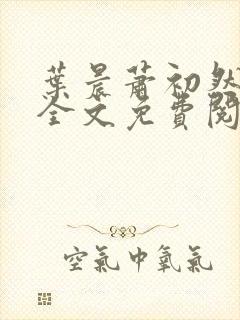 葉晨蕭初然
全文免費閱
空氣中氧氣